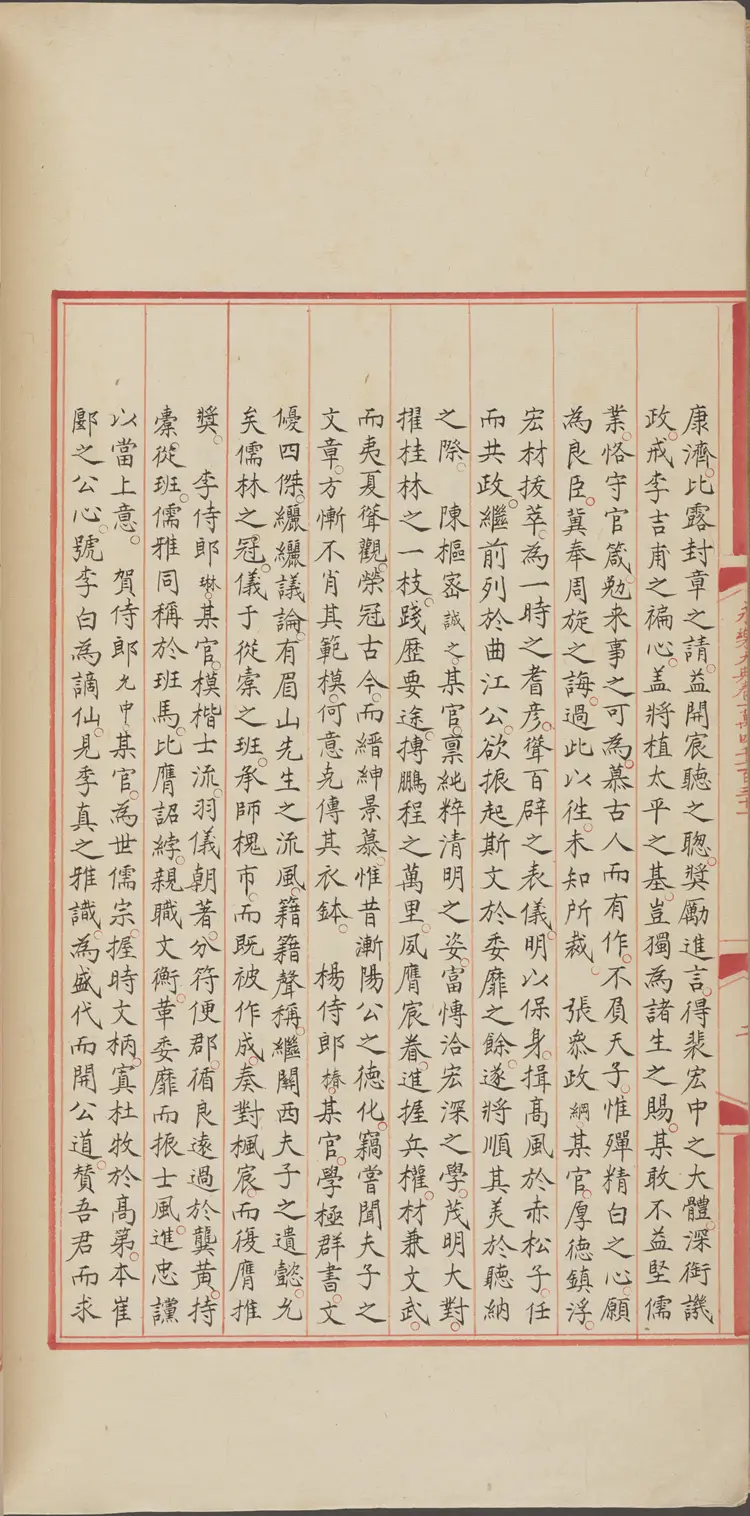 康濟比露封章之請益開宸聽之聰獎勵進言得裴宏中之大體深銜譏
政戒李吉甫之褊心盖將植太平之基豈獨為諸生之賜某敢不益堅儒
業恪守官箴勉来事之可為慕古人而有作不負天子惟殫精白之心願
為良臣冀奉周旋之誨過此以徃未知所裁 張叅政綱某官厚德鎮浮
宏材拔萃為一時之耆彦聳百辟之表儀明以保身揖髙風於赤松子任
而共政繼前列於曲江公欲振起斯文於委靡之餘遂將順其美於聽納
之際 陳樞宻誠之某官禀純粹清明之姿富愽洽宏深之學茂明大對
擢桂林之一枝踐歴要途摶鵬程之萬里夙膺宸眷進握兵權材兼文武
而夷夏聳觀榮冠古今而縉紳景慕惟昔漸陽公之徳化竊嘗聞夫子之
文章方慚不肖其範模何意克傳其衣鉢 楊侍郎椿某官學極群書文
優四傑纚纚議論有眉山先生之流風籍籍聲稱繼關西夫子之遺懿允
矣儒林之冠儀于從橐之班承師槐市而既被作成奏對楓宸而復膺推
獎 李侍郎琳某官模楷士流羽儀朝著分符便郡循良逺過於龔黄持
橐從班儒雅同稱於班馬比膺詔綍親職文衡革委靡而振士風進忠讜
以當上意 賀侍郎允中某官為世儒宗握時文柄寘杜牧於髙第本崔
郾之公心號李白為謫仙見季真之雅識為盛代而開公道賛吾君而求